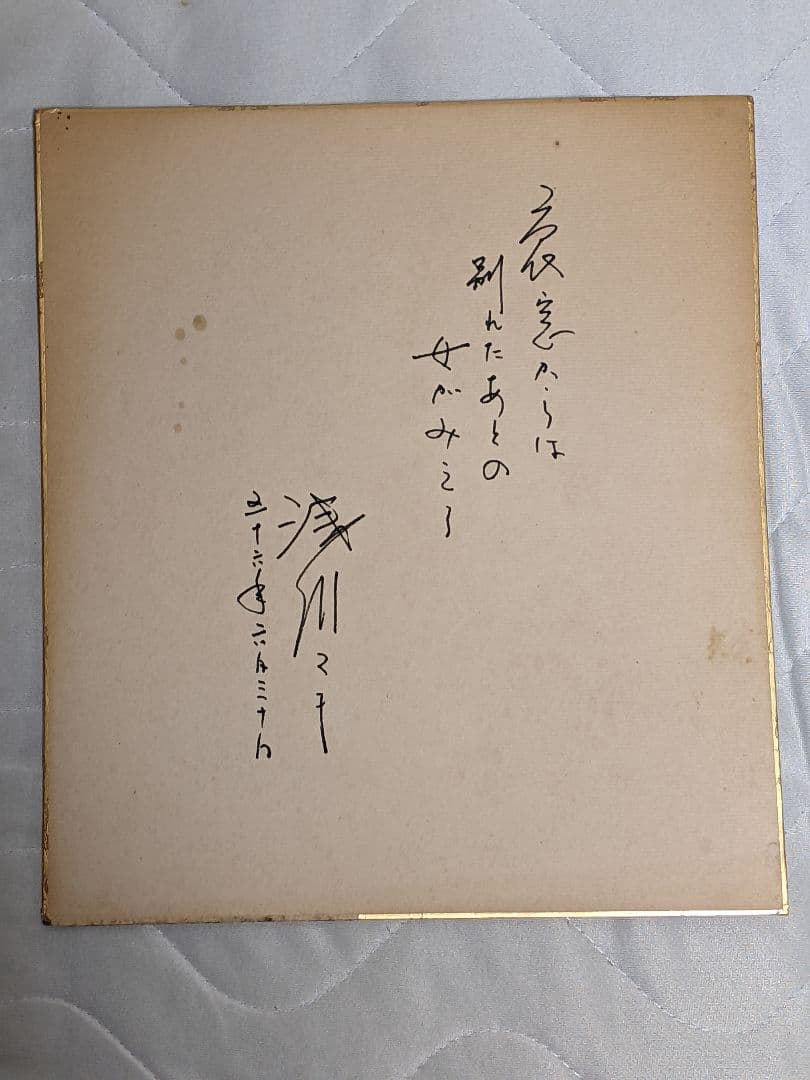 裏窓からは
別れたあとの
女がみえる
浅川マキ
五十六年六月三十日